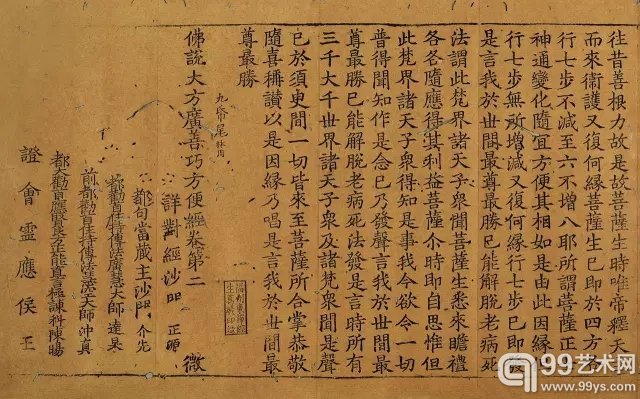 往昔善根力故是故菩薩生時唯帝釋天
而來衛護又復何緣菩薩生已即於四方各
行七步不減至六不增八耶所謂菩薩正士
神通變化隨宜方便其相如是由此因緣
行七步無所增減又復何緣行七步已即發
是言我於世間最尊最勝已能解脫老病死
法謂此梵界諸天子衆聞菩薩生悉來瞻禮
各各隨應得其利益菩薩尒時即自思惟但
此梵界諸天子衆得知是事我今欲令一切
普得聞知作是念已乃發聲言我於世間最
尊最勝已能解脫老病死法發是言時所有
三千大千世界諸天子衆及諸梵衆聞是聲
已於須臾間一切皆來至菩薩所合掌恭敬
隨喜稱讚以是因緣乃唱是言我於世間最
尊最勝
佛說大方廣善巧方便經卷第二 微
詳對經沙門 正
都勾當藏主沙門 介先
都勸首住持傳法廣慧大師 達杲
前都勸首住持傳法大師 沖真
都大勸首應賢良方正能直言極諫科陳暘
證會靈應侯王
99艺术网
www.99ys.com